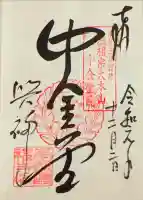 奉拝
令和元年
十二月二日
中金堂
興福寺